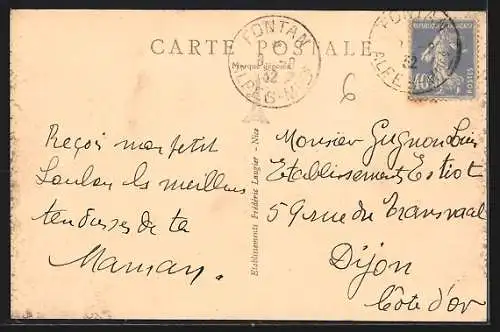 CARTE POSTALE
Marque déposée
FONTAN
32
ALPES-MMES
FONTAN
32
RÉPUBLIQUE FRANÇAISE
40c
POSTES
6
Reçois mon petit
Loulou les meilleures
tendresses de ta
Maman.
Etablissements Frédéric Laugier - Nice
Monsieur Gugnon Louis
Etablissements Estiot
59 rue du Transvaal
Dijon
Côte d'or